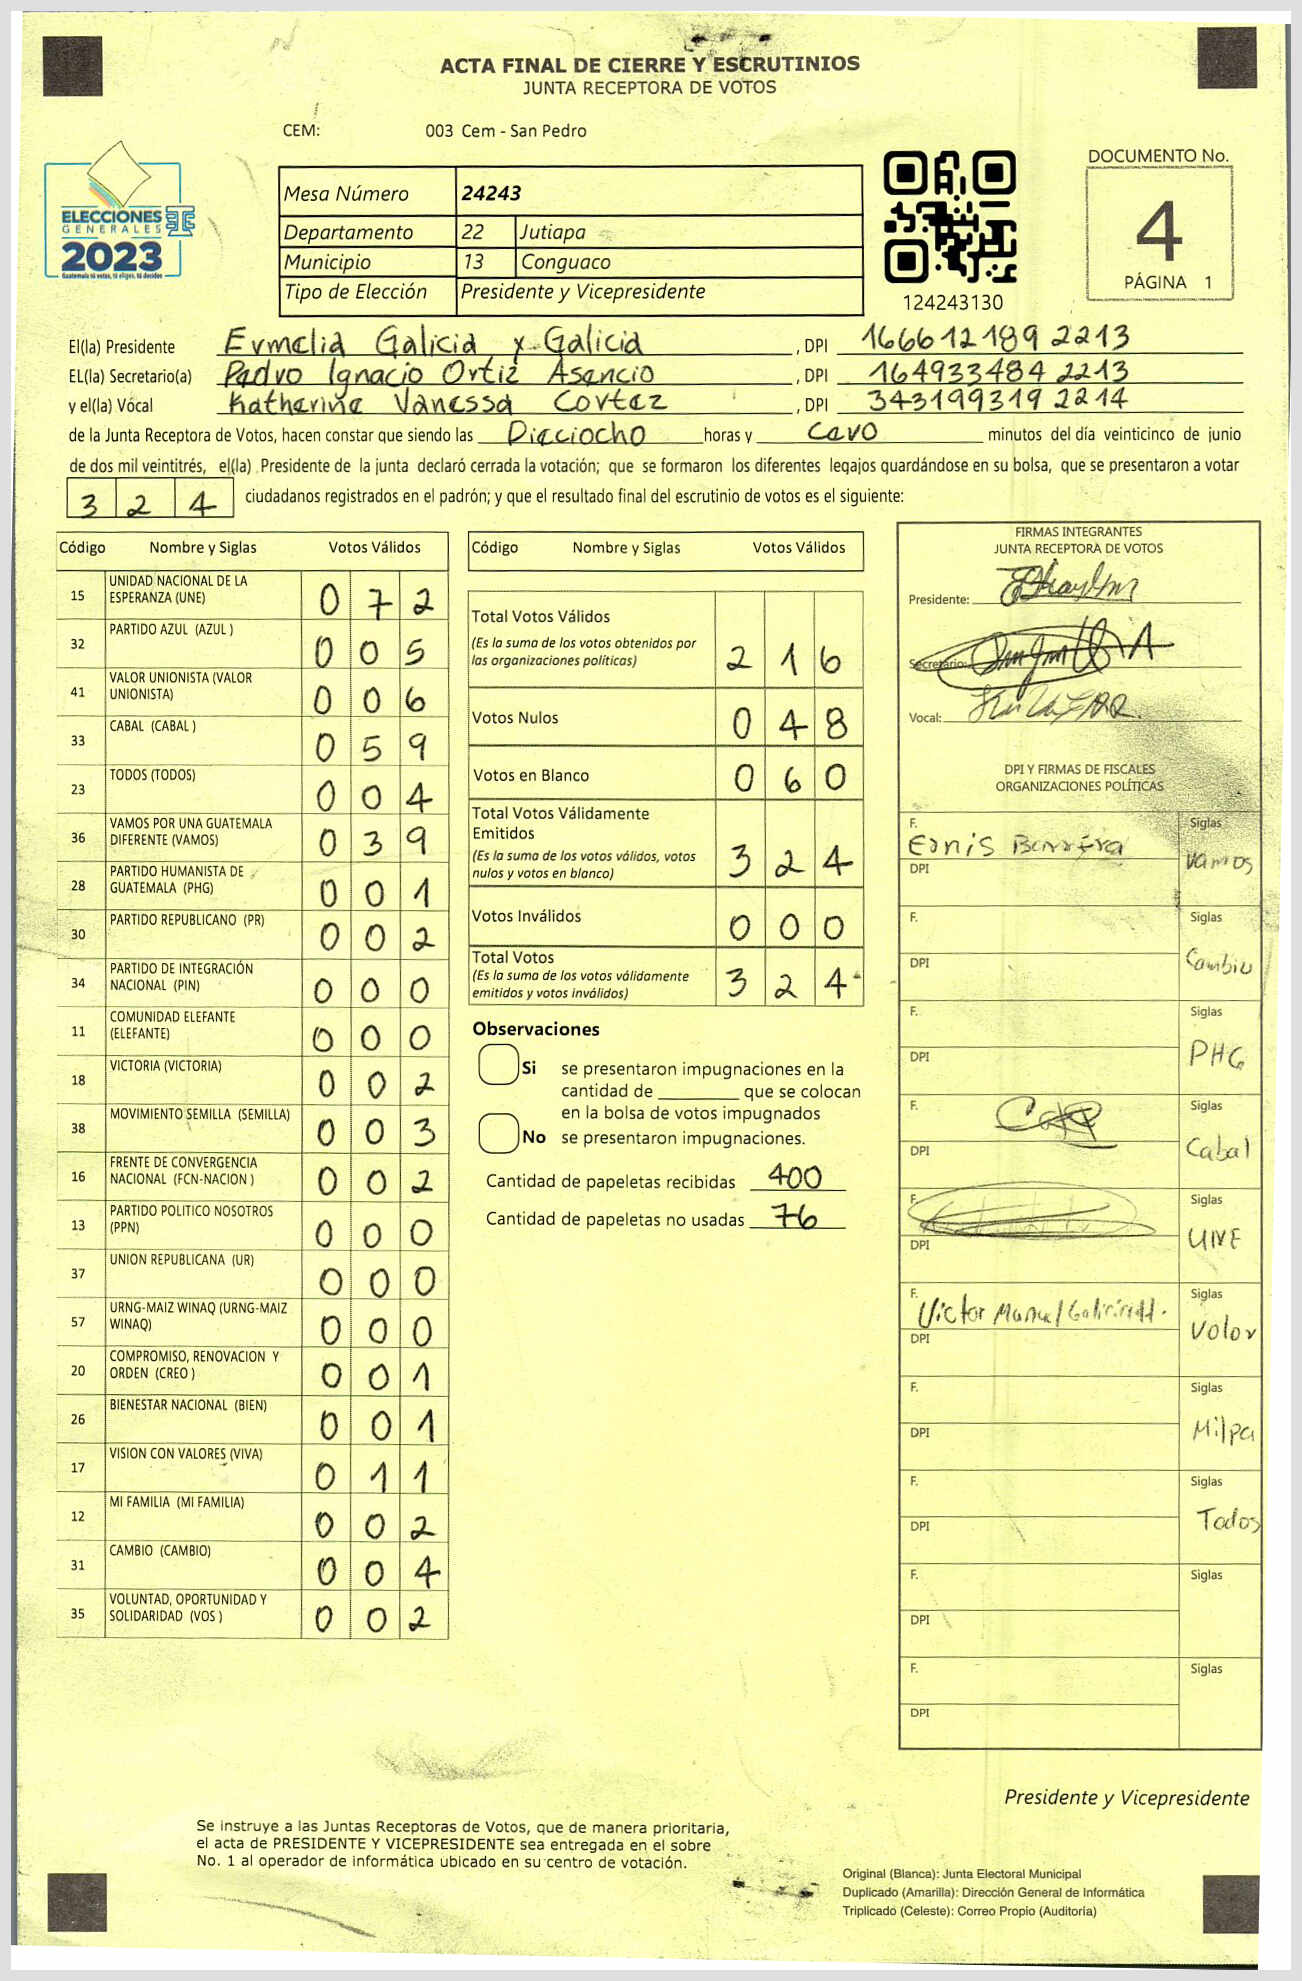 ACTA FINAL DE CIERRE Y ESCRUTINIOS
JUNTA RECEPTORA DE VOTOS
CEM: 003 Cem - San Pedro
ELECCIONES
GENERALES
2023
Guatemala tú votas, tú eliges, tú decides
Mesa Número 24243
Departamento 22 Jutiapa
Municipio 13 Conguaco
Tipo de Elección Presidente y Vicepresidente
124243130
DOCUMENTO No.
4
PÁGINA 1
El(la) Presidente Evmelia Galicia y Galicia , DPI 166612189 2213
EL(la) Secretario(a) Pedro Ignacio Ortiz Asencio , DPI 164933484 2213
y el(la) Vocal Katherine Vanessa Cortez , DPI 343199319 2214
de la Junta Receptora de Votos, hacen constar que siendo las Dieciocho horas y cero minutos del día veinticinco de junio
de dos mil veintitrés, el(la) Presidente de la junta declaró cerrada la votación; que se formaron los diferentes legajos guardándose en su bolsa, que se presentaron a votar
3 2 4 ciudadanos registrados en el padrón; y que el resultado final del escrutinio de votos es el siguiente:
Código Nombre y Siglas Votos Válidos
15 UNIDAD NACIONAL DE LA ESPERANZA (UNE) 0 7 2
32 PARTIDO AZUL (AZUL ) 0 0 5
41 VALOR UNIONISTA (VALOR UNIONISTA) 0 0 6
33 CABAL (CABAL ) 0 5 9
23 TODOS (TODOS) 0 0 4
36 VAMOS POR UNA GUATEMALA DIFERENTE (VAMOS) 0 3 9
28 PARTIDO HUMANISTA DE GUATEMALA (PHG) 0 0 1
30 PARTIDO REPUBLICANO (PR) 0 0 2
34 PARTIDO DE INTEGRACIÓN NACIONAL (PIN) 0 0 0
11 COMUNIDAD ELEFANTE (ELEFANTE) 0 0 0
18 VICTORIA (VICTORIA) 0 0 2
38 MOVIMIENTO SEMILLA (SEMILLA) 0 0 3
16 FRENTE DE CONVERGENCIA NACIONAL (FCN-NACION ) 0 0 2
13 PARTIDO POLITICO NOSOTROS (PPN) 0 0 0
37 UNION REPUBLICANA (UR) 0 0 0
57 URNG-MAIZ WINAQ (URNG-MAIZ WINAQ) 0 0 0
20 COMPROMISO, RENOVACION Y ORDEN (CREO ) 0 0 1
26 BIENESTAR NACIONAL (BIEN) 0 0 1
17 VISION CON VALORES (VIVA) 0 1 1
12 MI FAMILIA (MI FAMILIA) 0 0 2
31 CAMBIO (CAMBIO) 0 0 4
35 VOLUNTAD, OPORTUNIDAD Y SOLIDARIDAD (VOS ) 0 0 2
Código Nombre y Siglas Votos Válidos
Total Votos Válidos
(Es la suma de los votos obtenidos por
las organizaciones políticas) 2 1 6
Votos Nulos 0 4 8
Votos en Blanco 0 6 0
Total Votos Válidamente
Emitidos
(Es la suma de los votos válidos, votos
nulos y votos en blanco) 3 2 4
Votos Inválidos 0 0 0
Total Votos
(Es la suma de los votos válidamente
emitidos y votos inválidos) 3 2 4
Observaciones
Si se presentaron impugnaciones en la
cantidad de ________ que se colocan
en la bolsa de votos impugnados
No se presentaron impugnaciones.
Cantidad de papeletas recibidas 400
Cantidad de papeletas no usadas 76
FIRMAS INTEGRANTES
JUNTA RECEPTORA DE VOTOS
Presidente:
Secretario:
Vocal:
DPI Y FIRMAS DE FISCALES
ORGANIZACIONES POLÍTICAS
F. Siglas
DPI Vamos
F. Siglas
DPI Cambio
F. Siglas
DPI PHG
F. Siglas
DPI Cabal
F. Siglas
DPI UNE
F. Victor Manuel Siglas
DPI Valor
F. Siglas
DPI Milpa
F. Siglas
DPI Todos
F. Siglas
DPI
F. Siglas
DPI
Presidente y Vicepresidente
Se instruye a las Juntas Receptoras de Votos, que de manera prioritaria,
el acta de PRESIDENTE Y VICEPRESIDENTE sea entregada en el sobre
No. 1 al operador de informática ubicado en su centro de votación.
Original (Blanca): Junta Electoral Municipal
Duplicado (Amarilla): Dirección General de Informática
Triplicado (Celeste): Correo Propio (Auditoría)